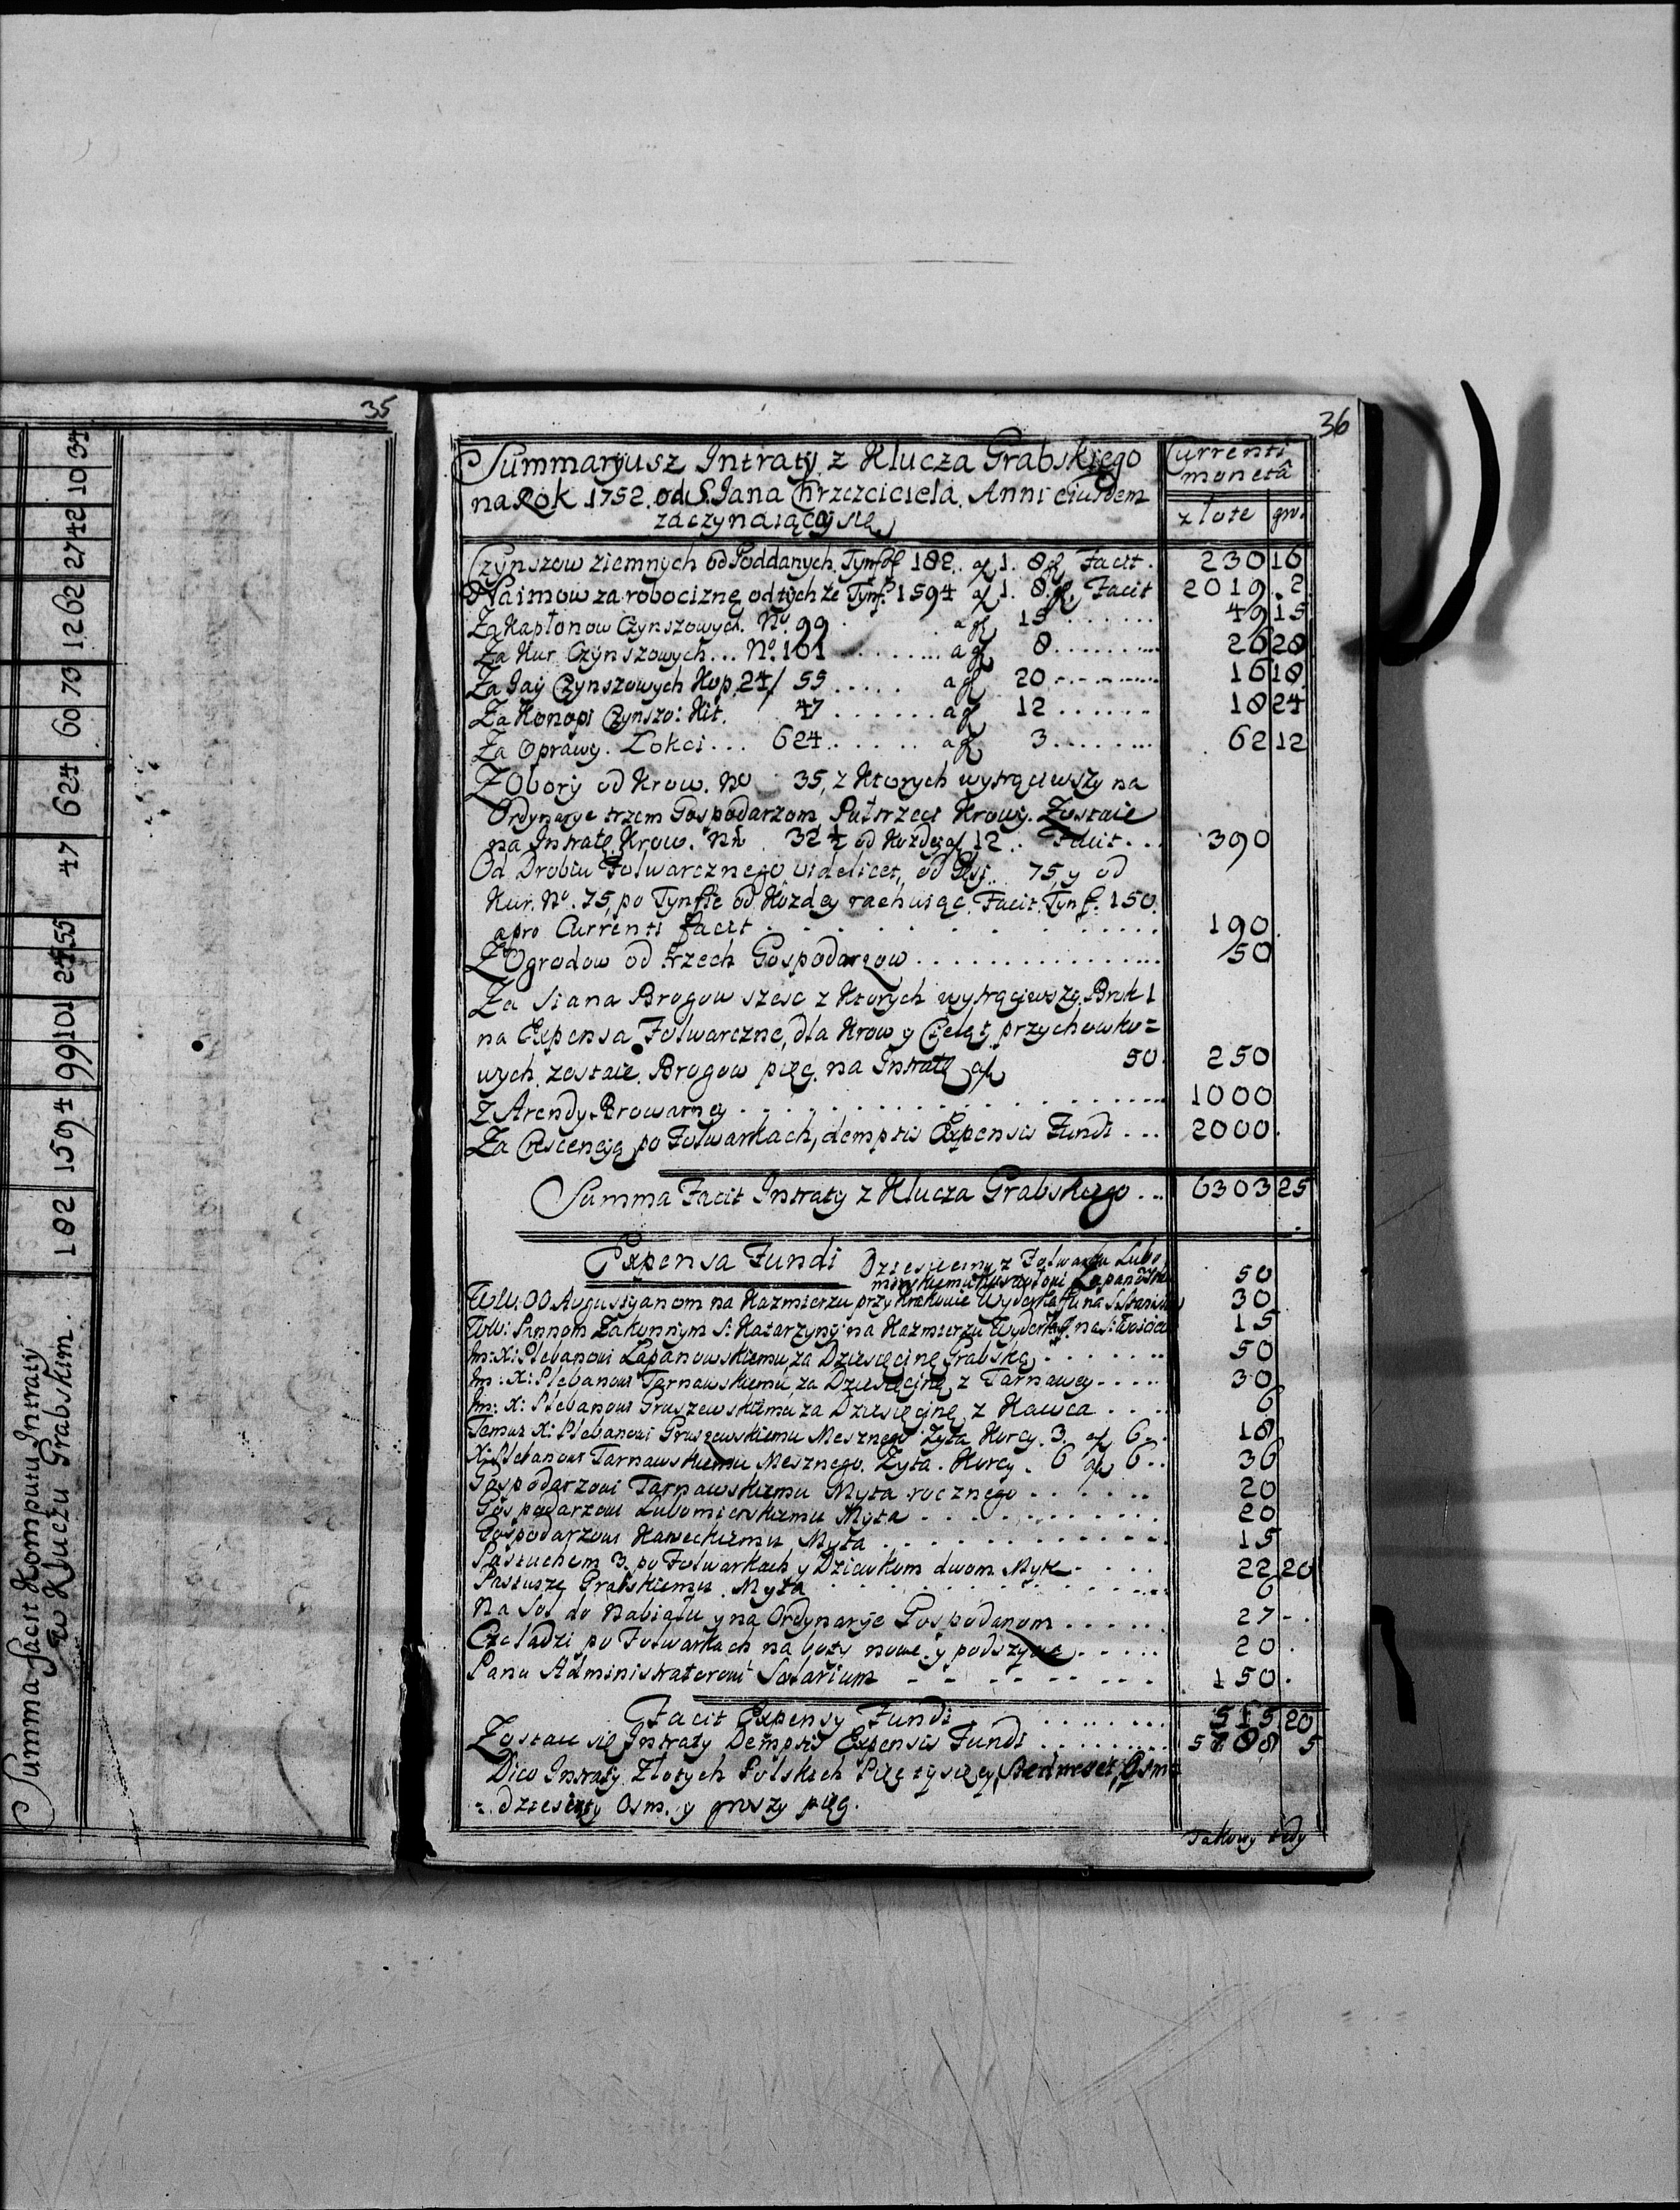 35
34
10
42
27
1262
73
60
624
47
55
24
101
99
1594
182
Summa facit Komputu Intraty
w Kluczu Grabskim.
36
Summaryusz Intraty z Klucza Grabskiego
na Rok 1752. od S. Jana Chrzciciela. Anni eiusdem
zaczynaiącey się
Currenti
monetâ
złote gro.
Czynszow ziemnych od Poddanych. Tynf. 182. a 1. 8 Facit. 230 16
Naimow za robociznę od tychże Tynf. 1594 a 1. 8. Facit 2019. 2.
Za Kapłonow Czynszowych. No. 99 . a 15 ....... 49 15
Za Kur Czynszowych... No. 101 ........... a 8 ........ 26 28
Za Jay Czynszowych Kop. 24/ 55 ..... a 20 ........ 16 18
Za Konopi Czynszo: Kit. 47 ....... a 12 ...... 18 24
Za Oprawy. Łokci... 624 ...... a 3 ........ 62 12
Z Obory od Krow. No 35, z Ktorych wytrąciwszy na
Ordynarye trzem Gospodarzom, Puttrzeci Krowy. Zostaie
na Intratę Krow. No. 32½ od Kożdey a 12. Facit... 390
Od Drobiu Folwarcznego videlicet, od Gęsi. 75, y od
Kur. No. 75, po Tynfie od Kożdey rachuiąc. Facit. Tynf. 150.
a pro Currenti facit . . . . . . . . . 190.
Z Ogrodow od trzech Gospodarzow ............... 50
Za Siana Brogow szesc z Ktorych wytrąciwszy. Brok 1
na Expensa Folwarczne, dla Krow y Cieląt przychowko=
wych, zostaie. Brogow pięć. na Intratę a 50. 250
Z Arendy Browarney ............... 1000
Za Crescencyą po Folwarkach, demptis Expensis Fundi ... 2000.
Summa Facit Intraty z Klucza Grabskiego ... 6303 25
Expensa Fundi Dziesięciny z Folwarku Lubo
50
WW: OO. Augustyanom na Kazmierzu przy Krakowie Wyderkaffu na S. 30
WW: Pannom Zakonnym S: Katarzyny na Kazmierzu 15
Im: X: Plebanowi Łapanowskiemu, za Dziesięcinę Grabską ....... 50
Im: X: Plebanowi Tarnawskiemu, za Dziesięcinę z Tarnawy ..... 30
Im: X: Plebanowi Gruszewskiemu za Dziesięcinę z Kawca .... 6
Temuz X: Plebanowi Gruszewskiemu Mesznego Zyta Korcy. 3. a 6.. 18
X: Plebanowi Tarnawskiemu Mesznego. Zyta. Korcy. 6 a 6.. 36
Gospodarzowi Tarnawskiemu Myta rocznego ...... 20
Gospodarzowi Lubomierskiemu Myta ............ 20
Gospodarzowi Kaweckiemu Myta ............ 15
Pastuchom 3. po Folwarkach y Dziewkom dwom Myt ..... 22 20
Pastusze Grabskiemu. Myta ............ 6
Na Sol do Nabiału y na Ordynarye Gospodarzom ...... 27 -.
Czeladzi po Folwarkach na boty nowe y podszycie ..... 20.
Panu Administratorowi Salarium - - - - - - - . 150.
Facit Expensy Fundi ........ 515 20
Zostaie się Intraty Demptis Expensis Fundi ......... 5788 5
Dico Intraty Złotych Polskich Pięć tysięcy, Siedmset, Osm
= dziesiąty Osm. y groszy pięć.
Takowy tedy